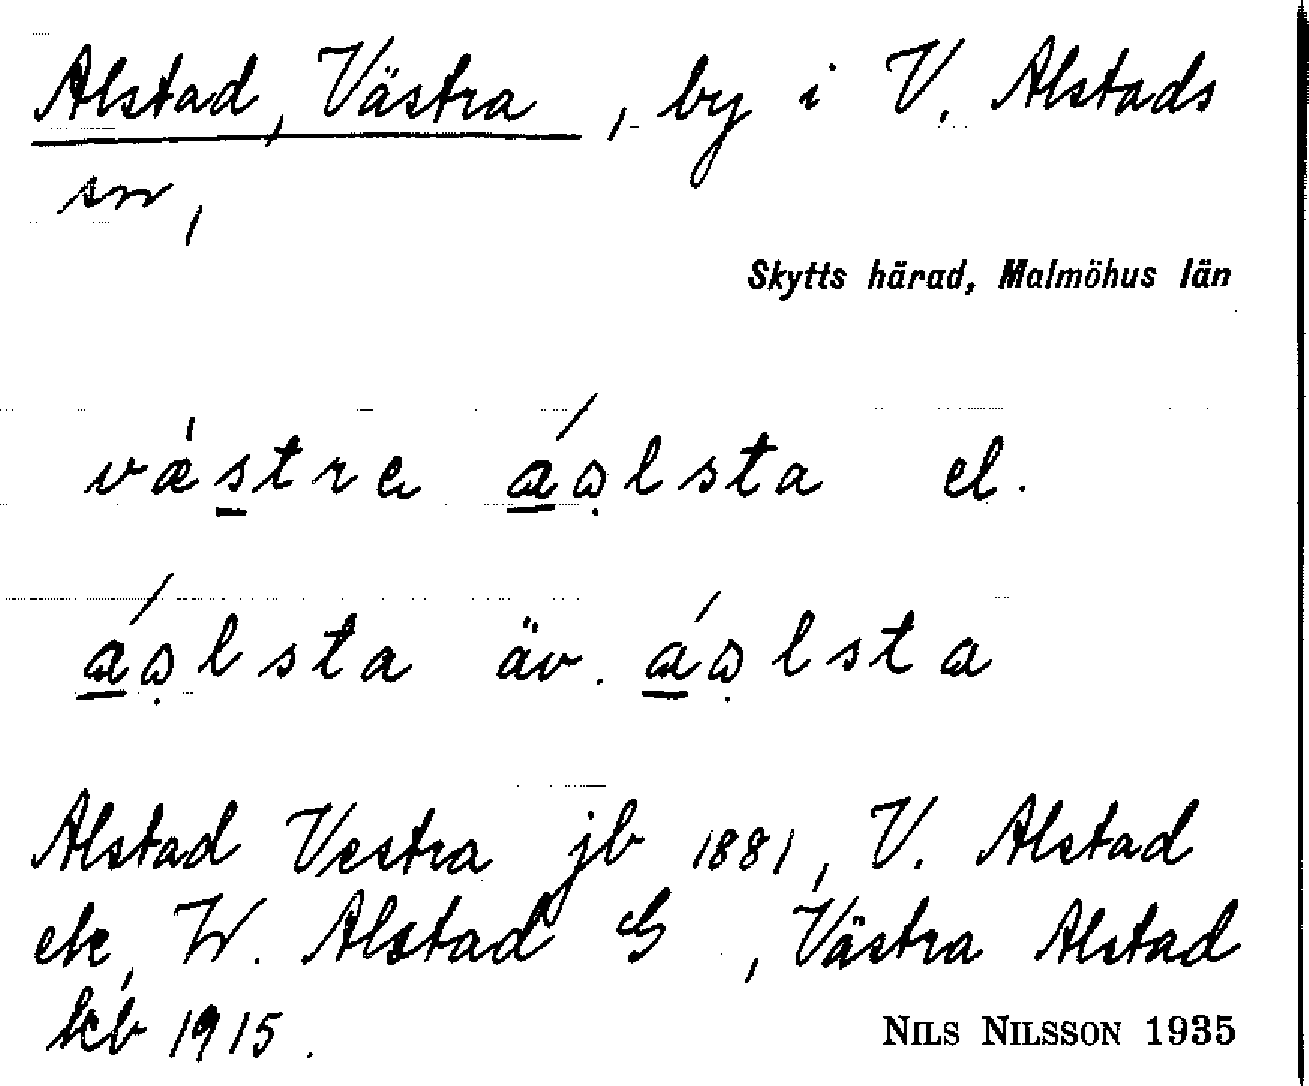 Alstad, Västra, by i V. Alstads
sn,
Skytts härad, Malmöhus län
væstre áạlsta el.
áạlsta äv. áạlsta
Alstad Vestra jb 1881, V. Alstad
ek, W. Alstad G, Västra Alstad
kb 1915.
NILS NILSSON 1935